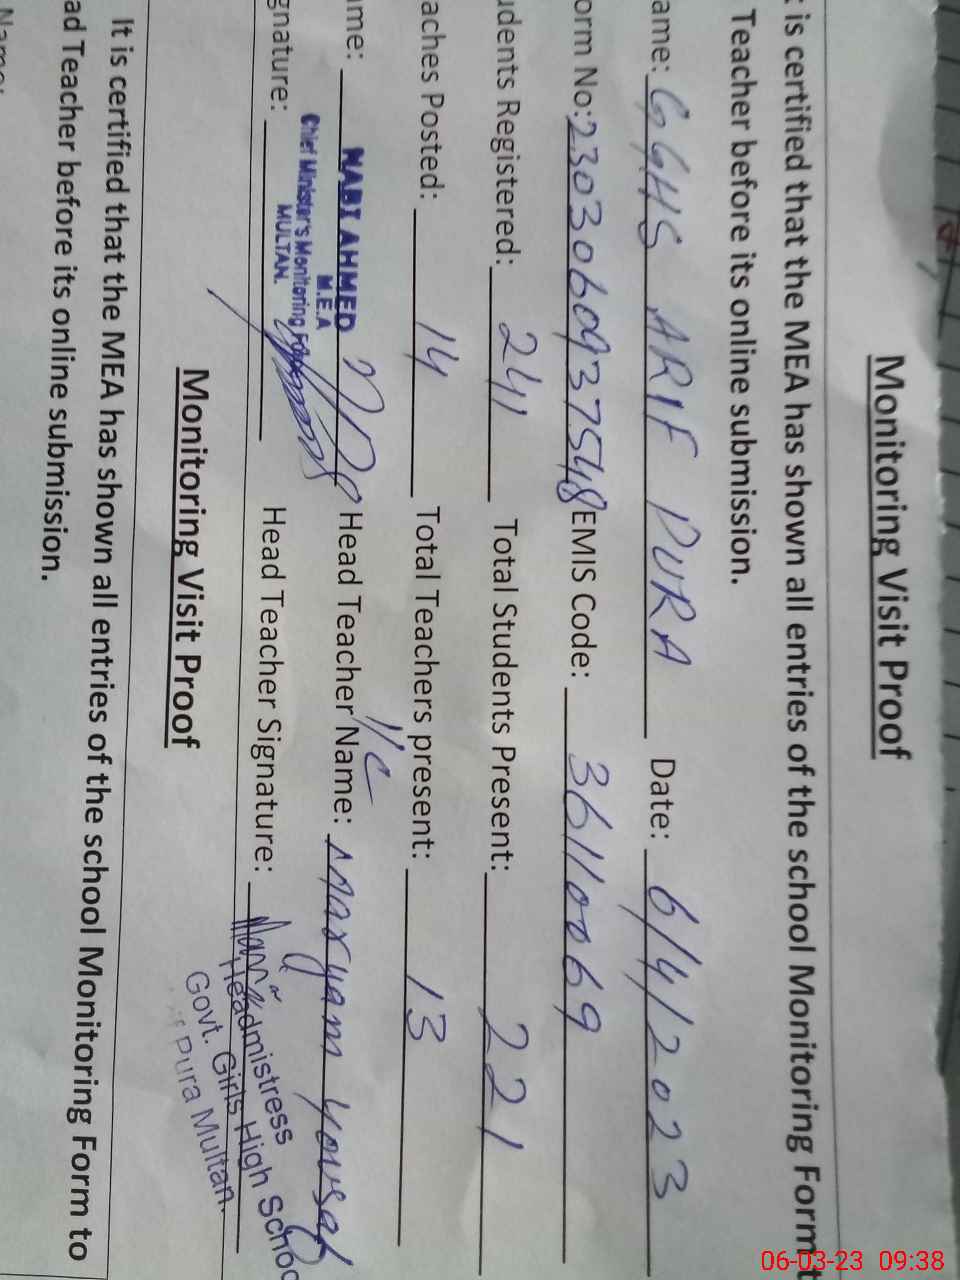 Monitoring Visit Proof
is certified that the MEA has shown all entries of the school Monitoring Form t
Teacher before its online submission.
ame: GGHS ARIF PURA Date: 6/4/2023
orm No: 2303060937548 EMIS Code: 36110069
udents Registered: 241 Total Students Present: 221
aches Posted: 14 Total Teachers present: 13
I/C
me: NABI AHMED Head Teacher Name: Maryam Yousaf
M.E.A
Chief Minister's Monitoring Force
MULTAN.
gnature: Head Teacher Signature:
Headmistress
Govt. Girls High Schoo
Pura Multan.
Monitoring Visit Proof
It is certified that the MEA has shown all entries of the school Monitoring Form to
ad Teacher before its online submission.
Name:
06-03-23 09:38